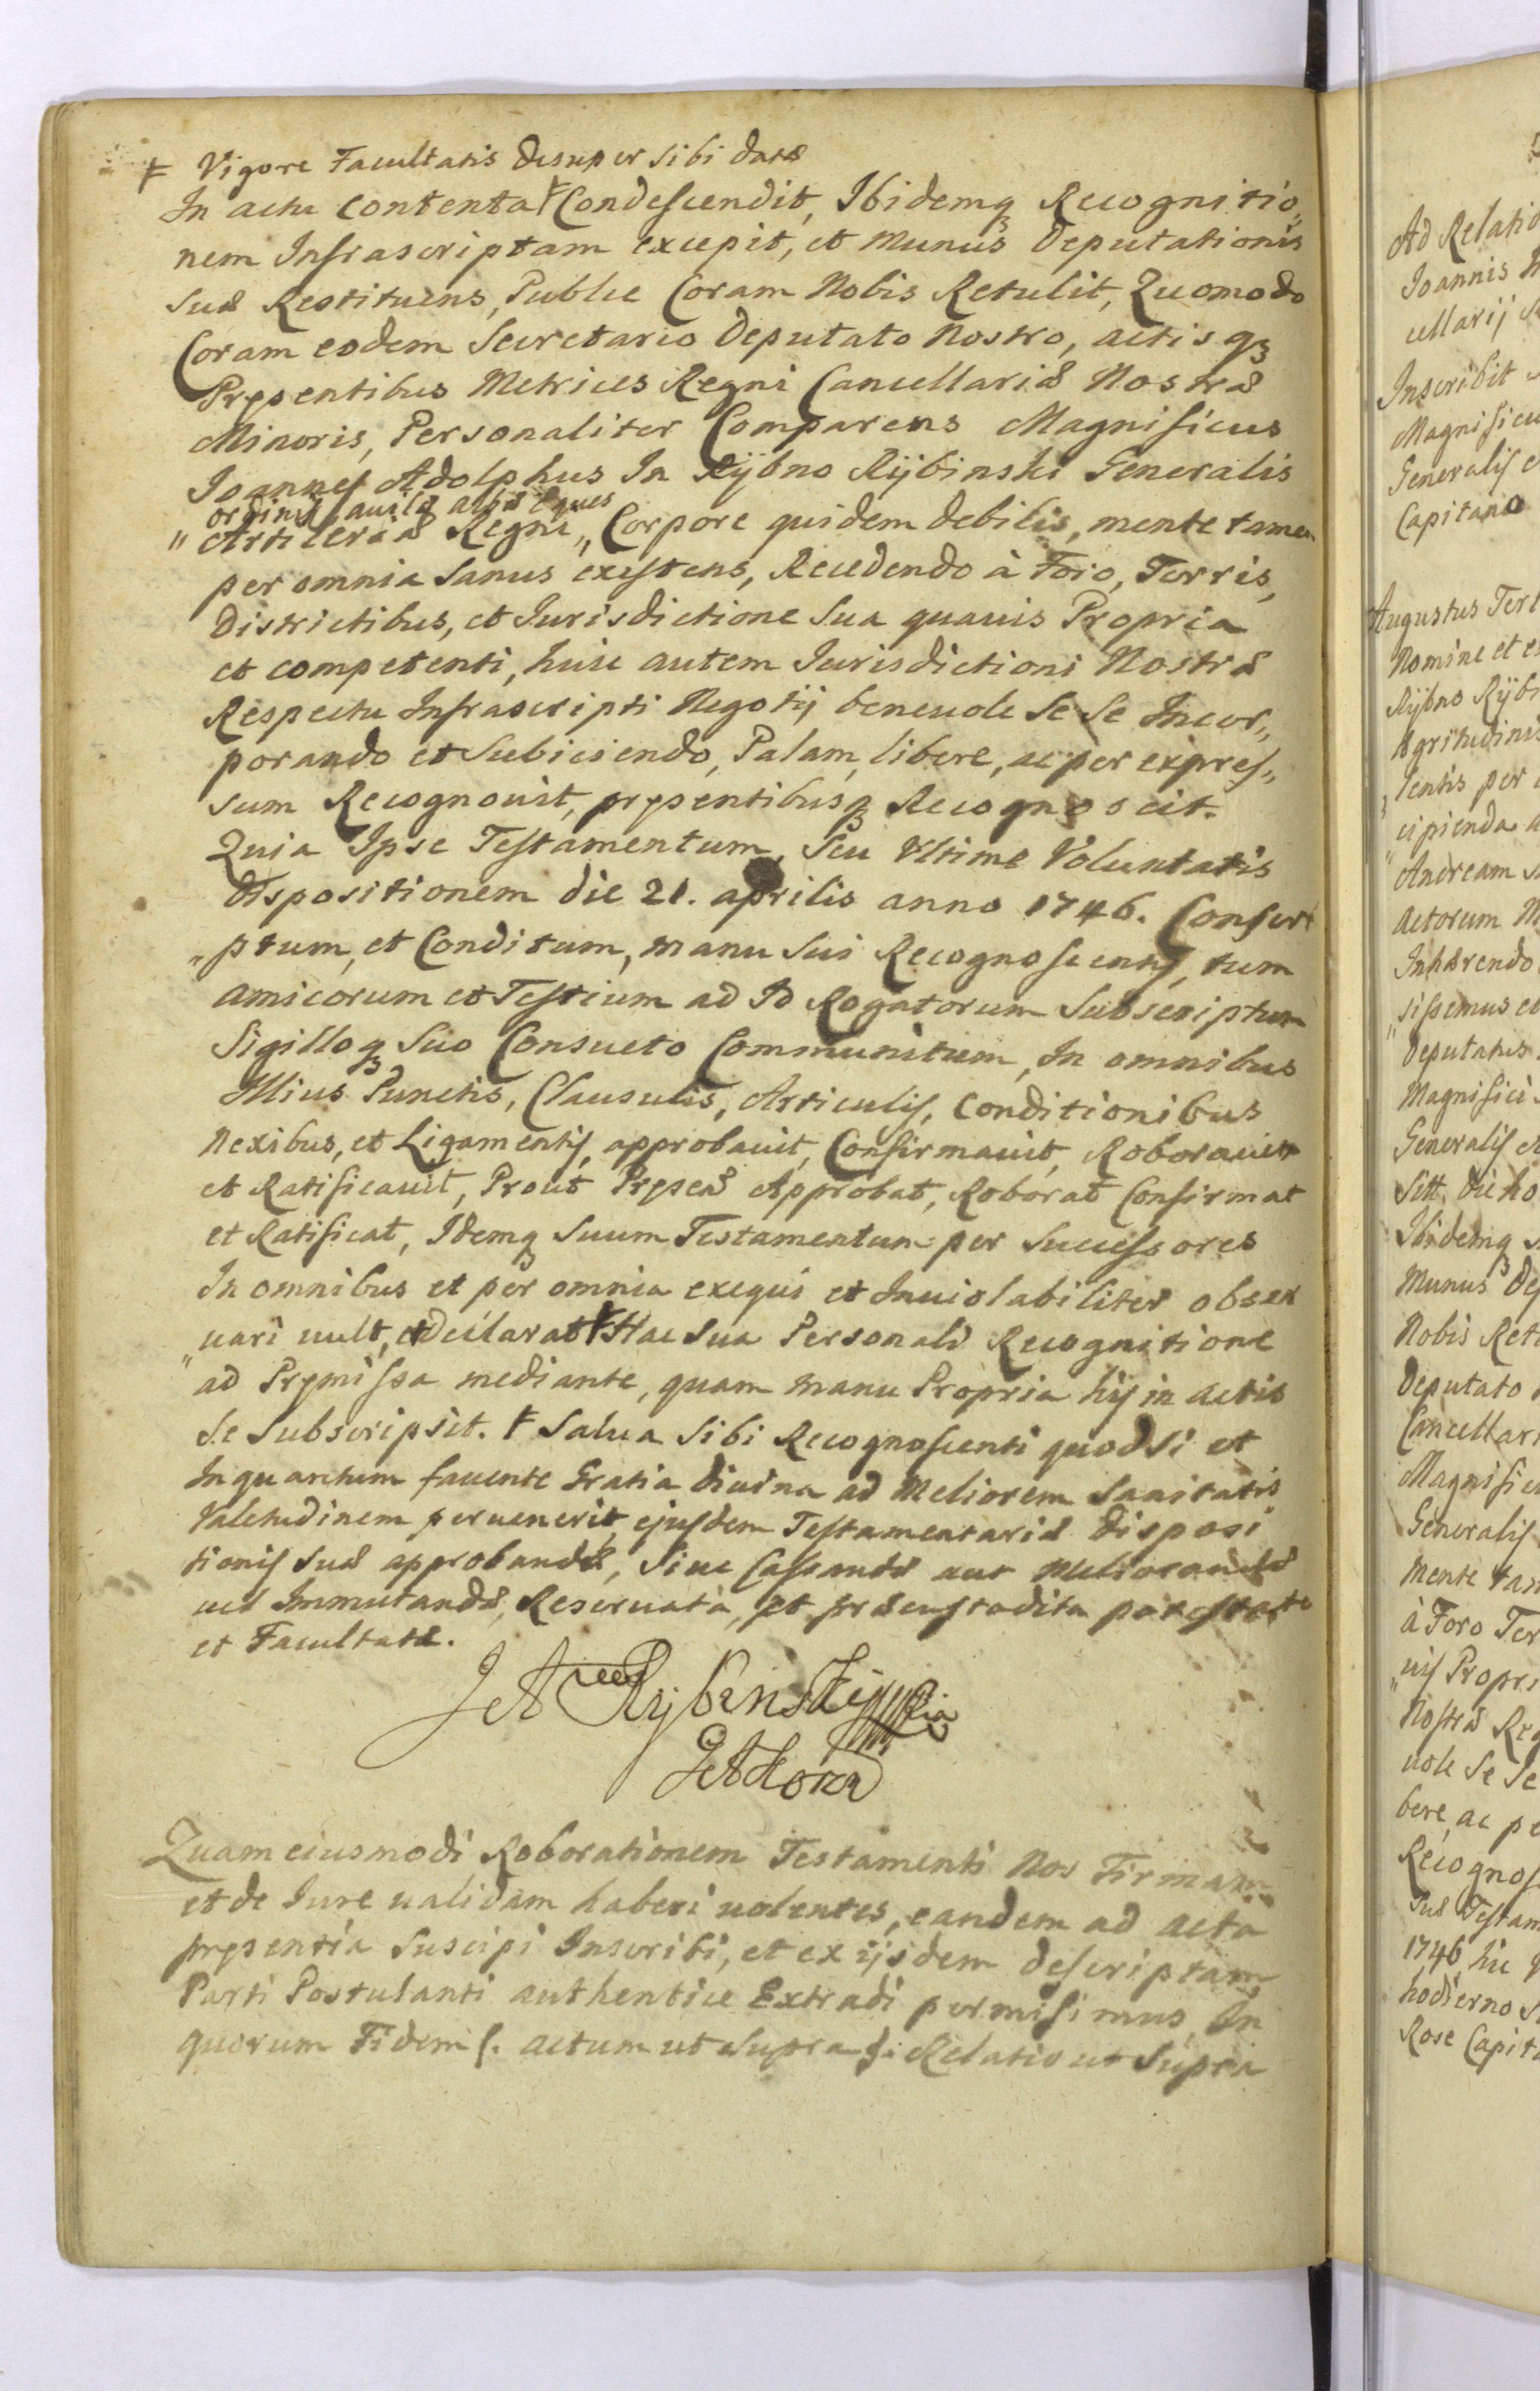 Ꞙ Vigore Facultatis desuper sibi datæ
In actu contenta Ꞙ Condescendit, Ibidemq Recognitio„
nem Infrascriptam excepit, et Munus Deputationis
suæ Restituens, Publice Coram Nobis Retulit, Quomodo
Coram eodem Secretario Deputato Nostro, actisq
Pręsentibus Metrices Regni Cancellariæ Nostræ
Minoris, Personaliter Comparens Magnificus
Joannes Adolphus In Rÿbno Rÿbinski Generalis
ordinis auilæ albæ Eques
„ Artileriæ Regni„ Corpore quidem debilis, mente tamen
per omnia Sanus existens, Recedendo à Foro, Terris,
Districtibus, et Iurisdictione Sua quauis Propria
et competenti, huic autem Iurisdictioni Nostræ
Respectu Infrascripti Negotij beneuole Se Se Incor„
porando et Subiciendo, Palam, libere, ac per expres„
sum Recognouit, pręsentibusq Recognoscit.
Quia Ipse Testamentum, Seu Vltime Voluntatis
Dispositionem die 21. aprilis anno 1746. Conscri
„ptum, et Conditum, manu Sui Recognoscentis, tum
amicorum et Testium ad Id Rogatorum Subscriptum
Sigilloq Suo Consueto Communitum, In omnibus
Illius Punctis, Clausulis, Articulis, Conditionibus
Nexibus, et Ligamentis, approbauit, Confirmauit, Roborauit
et Ratificauit, Prout Pręseñ Approbat, Roborat Confirmat
et Ratificat, Idemq Suum Testamentum per Successores
In omnibus et per omnia exequi et Inuiolabiliter obser
„uari uult, et declarat Ꞙ Hac Sua Personali Recognitione
ad Pręmissa mediante, quam manu Propria hij in actis
Se Subscripsit. Ꞙ Salua Sibi Recognoscenti quodsi et
Inquantum fauente Gratia diuina ad Meliorem Sanitatis
Valetudinem peruenerit, ejusdem Testamentariæ Disposi
tionis Suæ approbandæ, Siue Cassandæ aut Meliorandæ
uel Immutandæ, Reseruata, et præcustodita potestate
et Facultate.
Rÿbinskij
Quam eiusmodi Roborationem Testamenti Nos Firmam
et de Iure ualidam haberi uolentes, eandem ad acta
pręsentia Suscipi Inscribi, et ex ijsdem descriptam
Parti Postulanti authentice Extradi permisimus, In
quorum Fidem ſ. actum ut Supra ſ. Relatio ut Supra
Ad Relatio
Joannis
cellarij
Inscribit
Magnificu
Generalis
Capitano
Augustus Tert
Nomine et
Rÿbno Rÿbi
Ægritudinis
lentis per
cipienda
Andream
actorum
Inhærendo
„sissemus
Deputatus
Magnifici
Generalis
Sitt. die ho
Ibidemq
Munus De
Nobis Ret
Deputato
Cancellari
Magnifi
Generalis
Mente tam
à Foro Ter
uis Propri
Nostræ Re
uole Se Se
bere, ac pe
Recognos
Suæ Testam
1746 hic
hodierno
Rose Capit